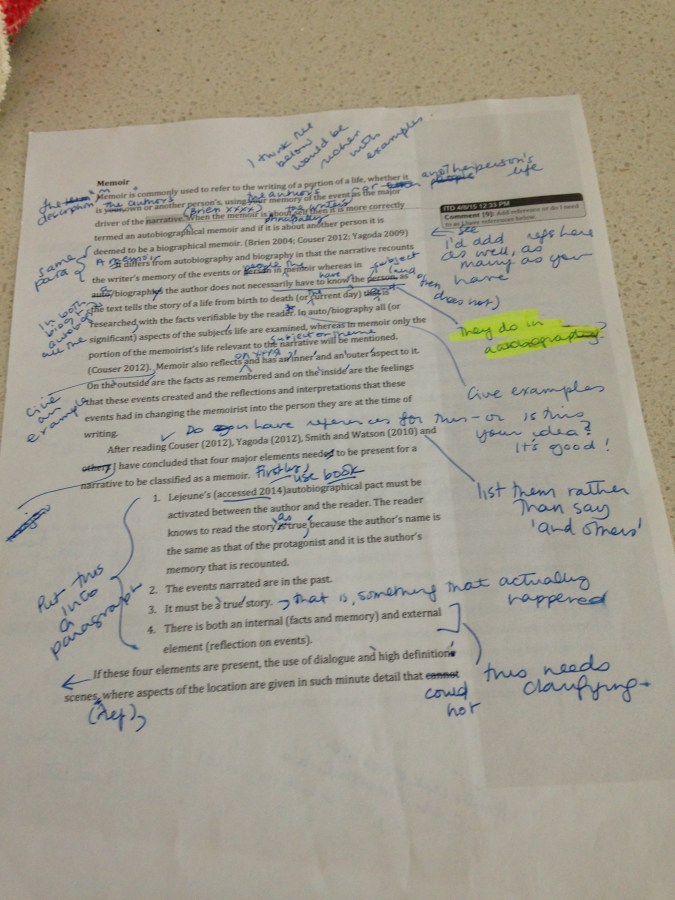 I think the
below
would be
richer
with
examples.
Memoir
Memoir is commonly used to refer to the writing of a portion of a life, whether it
another person's
life
is your own or another person's, using your memory of the event as the major
the author's
the author's
driver of the narrative. When the memoir is about self then it is more correctly
(Brien xxxx)
the writer's
termed an autobiographical memoir and if it is about another person it is
deemed to be a biographical memoir. (Brien 2004; Couser 2012; Yagoda 2009)
same
para
A memoir
is differs from autobiography and biography in that the narrative recounts
the writer's memory of the events or person in memoir whereas in
subject
auto/biography the author does not necessarily have to know the person, as
the text tells the story of a life from birth to death (or current day) that is
researched with the facts verifiable by the reader. In auto/biography all (or
significant) aspects of the subjects life are examined, whereas in memoir only the
portion of the memoirist's life relevant to the narrative will be mentioned.
(Couser 2012). Memoir also reflects and has an inner and an outer aspect to it.
on xxxx
On the outside are the facts as remembered and on the inside are the feelings
that these events created and the reflections and interpretations that these
events had in changing the memoirist into the person they are at the time of
writing.
Give
an
example
ITD 4/8/15 12:33 PM
Comment [9]: Add reference or do I need
to as I have references below
see
I'd add refs here
as well, as
many as you
have
does not)
They do in
Give examples
Do you have references for this - or is this
your idea?
It's good!
After reading Couser (2012), Yagoda (2012), Smith and Watson (2010) and
others I have concluded that four major elements needed to be present for a
narrative to be classified as a memoir.
Firstly,
use book
list them rather
than say
'and others'
1. Lejeune's (accessed 2014)autobiographical pact must be
activated between the author and the reader. The reader
knows to read the story is true because the author's name is
as
the same as that of the protagonist and it is the author's
memory that is recounted.
2. The events narrated are in the past.
3. It must be a true story.
that is, something that actually
happened
4. There is both an internal (facts and memory) and external
element (reflection on events).
Put this
into
a
paragraph
If these four elements are present, the use of dialogue and high definition
scenes, where aspects of the location are given in such minute detail that cannot
could
not
(ref)
this needs
clarifying